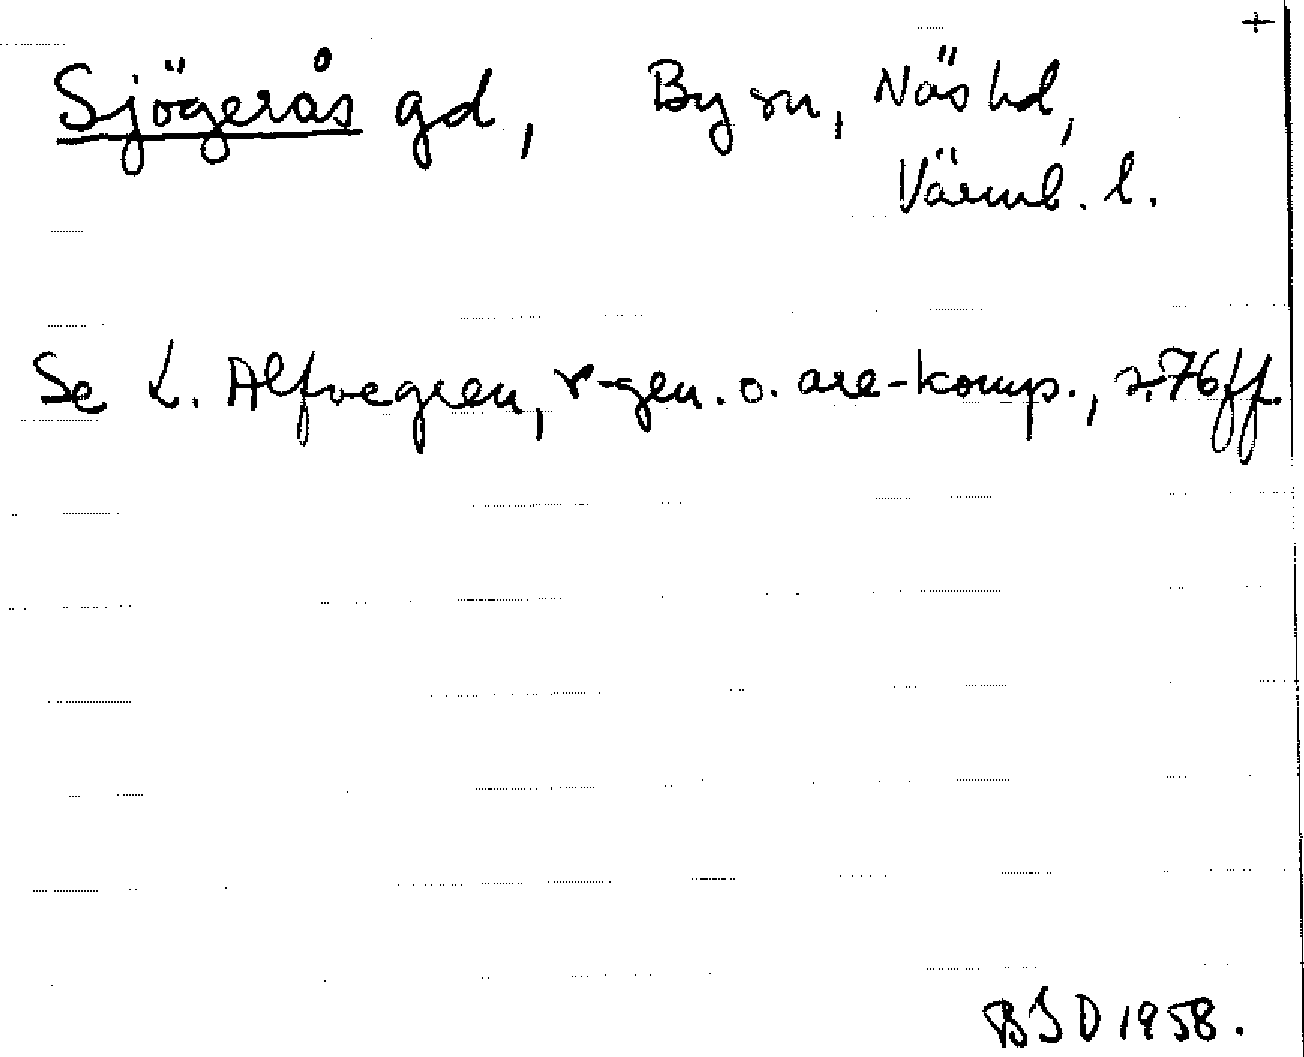 +
Sjögerås gd, By sn, Näs hd,
Värml. l.
Se L. Alfvegren, r-gen. o. are-komp., s. 76 ff.
BSD 1958.